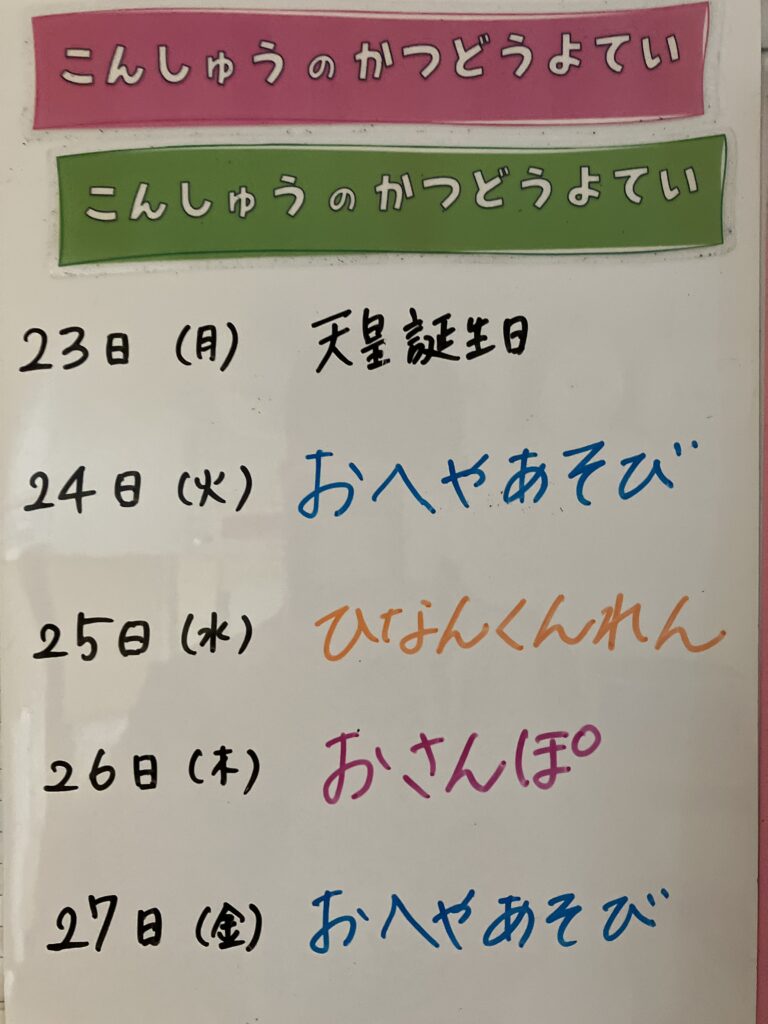 こんしゅうのかつどうよてい
こんしゅうのかつどうよてい
23日(月) 天皇誕生日
24日(火) おへやあそび
25日(水) ひなんくんれん
26日(木) おさんぽ
27日(金) おへやあそび